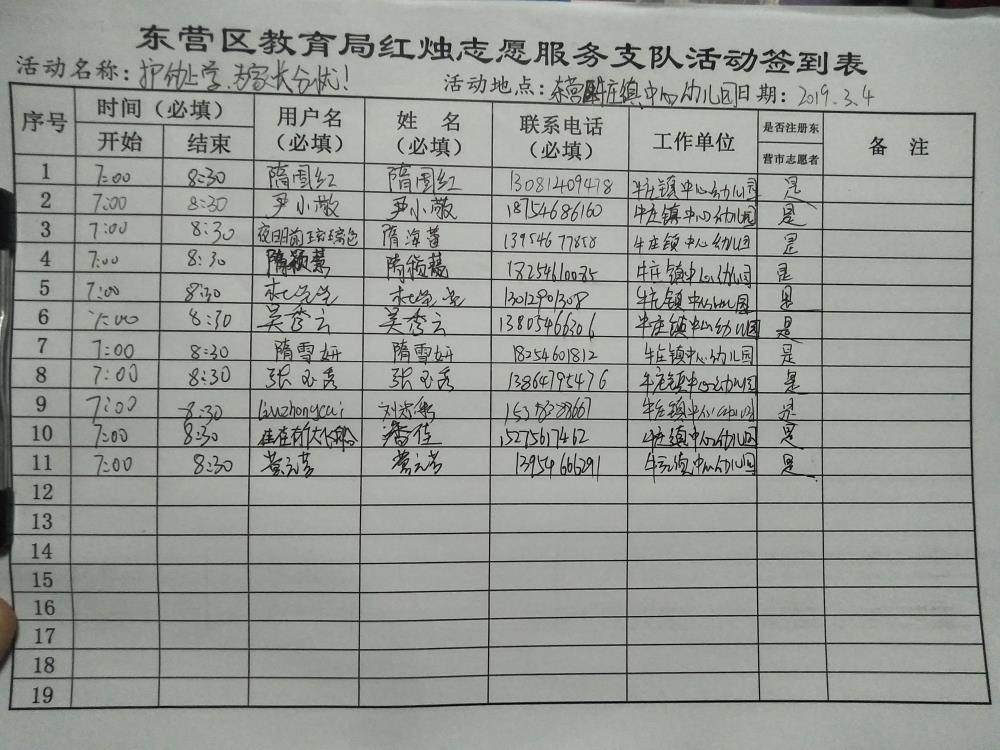 东营区教育局红烛志愿服务支队活动签到表
活动名称：护幼上学,为家长分忧! 活动地点：东营区牛庄镇中心幼儿园 日期：2019.3.4
序号 时间（必填） 用户名（必填） 姓 名（必填） 联系电话（必填） 工作单位 是否注册东营市志愿者 备 注
开始 结束
1 7:00 8:30 隋国红 隋国红 13081409478 牛庄镇中心幼儿园 是
2 7:00 8:30 尹小敏 尹小敏 18754686160 牛庄镇中心幼儿园 是
3 7:00 8:30 隋海蕾 13954677858 牛庄镇中心幼儿园 是
4 7:00 8:30 18254610085 牛庄镇中心幼儿园 是
5 7:00 8:30 13012901308 牛庄镇中心幼儿园 是
6 7:00 8:30 吴秀云 吴秀云 13805466306 牛庄镇中心幼儿园 是
7 7:00 8:30 隋雪妍 隋雪妍 18254601812 牛庄镇中心幼儿园 是
8 7:00 8:30 张玉秀 张玉秀 13864795476 牛庄镇中心幼儿园 是
9 7:00 8:30 liuzhongcai 15358328667 牛庄镇中心幼儿园 是
10 7:00 8:30 潘佳 15275617462 牛庄镇中心幼儿园 是
11 7:00 8:30 13954666291 牛庄镇中心幼儿园 是
12
13
14
15
16
17
18
19